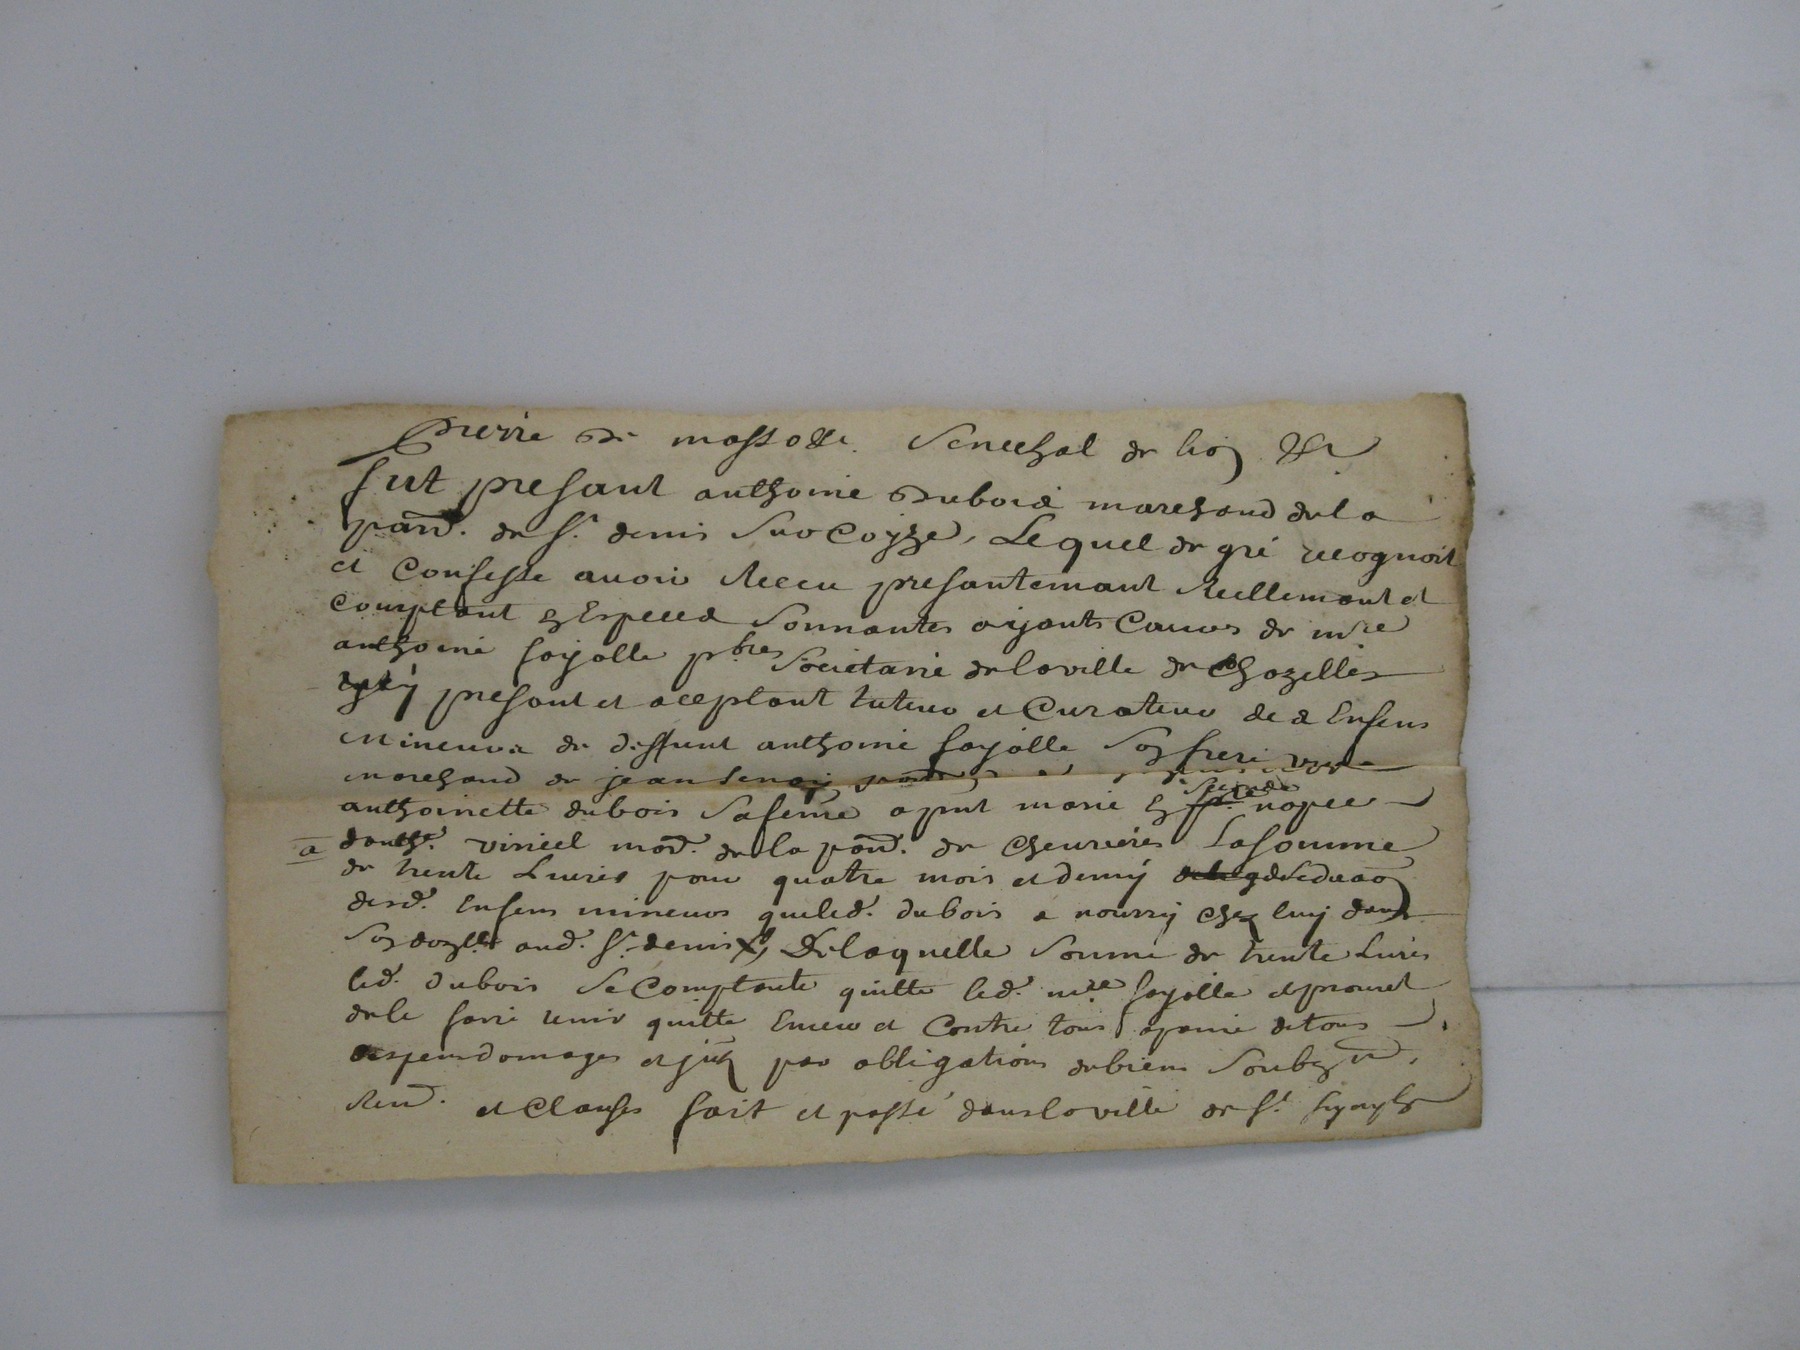 Pierre de massosse Senechal de lion &c
fut presant anthoine Dubois marchand de la
parr. de St. denis Sur Coyze, Lequel de gré recognoit
et Confesse avoir Receu presantemant Reellemant et
comptant en Especes Sonnantes ayants Cours de mre
anthoine fayolle pbre Societaire de la ville de Chazelles
icy presant et aceptant tuteur et Curateur des Enfens
mineurs de deffunt anthoine fayolle Son frere vivt
marchand de
anthoinette dubois Sa feme a pnt marie en Seconde nopces
a danthe. viricel mard. de la parr. de Chevrieres La somme
de trente Livres pour quatre mois et demy
desd. Enfens mineurs que led. dubois a nourry Chez luy dans
Son domlle aud. St. denis, De laquelle Somme de trente Livres
led. dubois Se Comptente quitte led. mre fayolle et promet
de le faire tenir quitte Envers et Contre tous a paine de tous
despens domages et par obligations de biens Soubzon,
Ren. et Clauses fait et passé dans la ville de St.